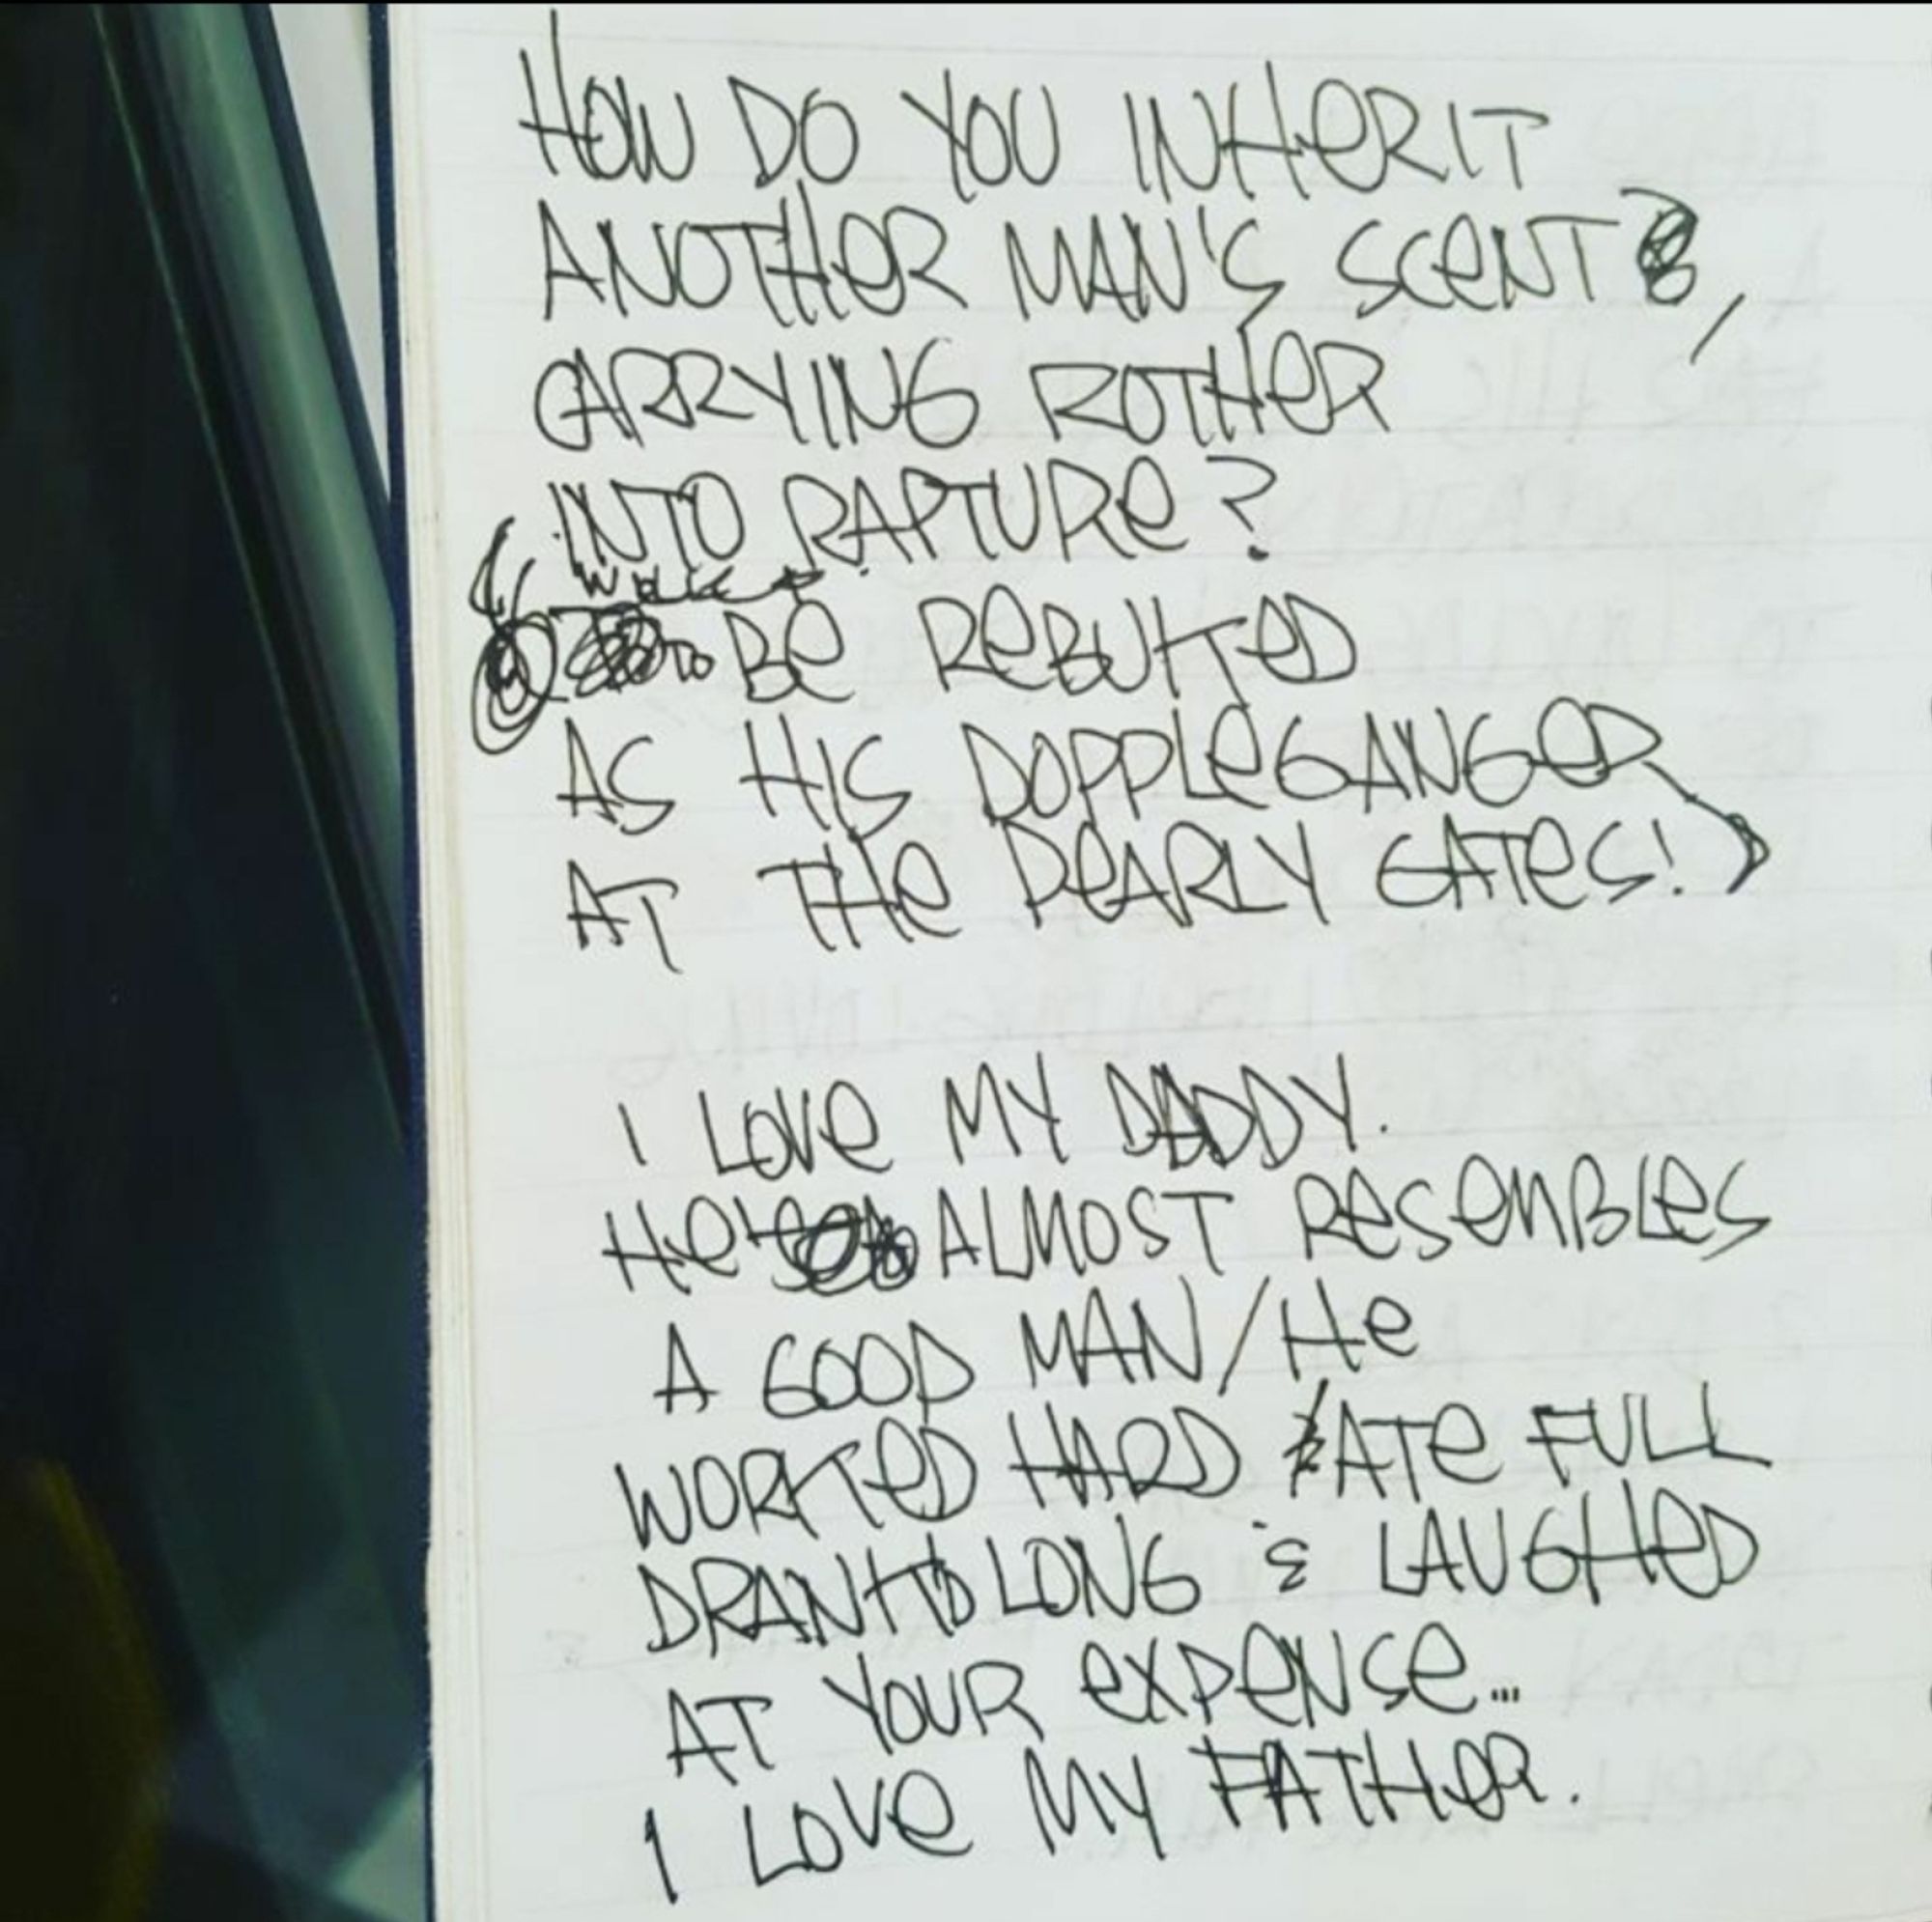 HOW DO YOU INHERIT
ANOTHER MAN'S SCENT,
CARRYING ROTHER
INTO RAPTURE?
(
TO BE REBUKED
AS HIS DOPPLEGANGER
AT THE PEARLY GATES!)
I LOVE MY DADDY.
HE ALMOST RESEMBLES
A GOOD MAN/HE
WORKED HARD & ATE FULL
DRANK LONG & LAUGHED
AT YOUR EXPENSE...
I LOVE MY FATHER.